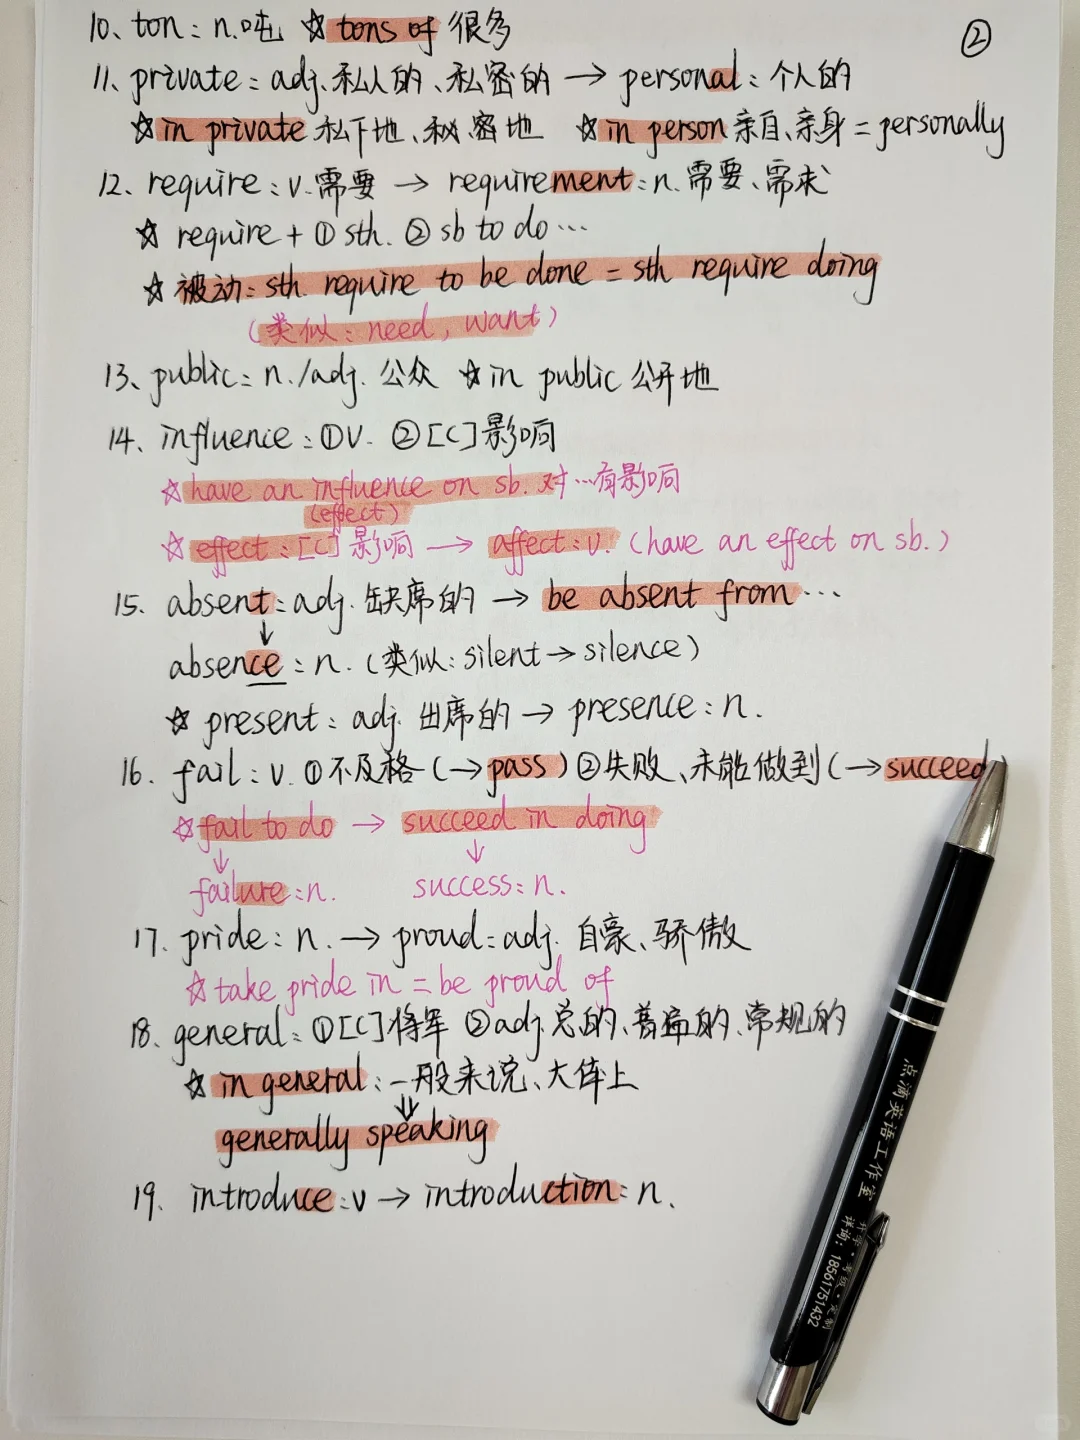 ②
10、ton：n.吨 ☆tons of 很多
11、private：adj.私人的、私密的 → personal：个人的
☆in private 私下地、秘密地 ☆in person 亲自、亲身 = personally
12、require：v.需要 → requirement：n.需要、需求
☆ require + ①sth. ②sb to do…
☆ 被动：sth. require to be done = sth require doing
（类似：need, want）
13、public：n./adj. 公众 ☆in public 公开地
14、influence：①v. ②[C]影响
☆have an influence on sb. 对…有影响
(effect)
☆effect：[C]影响 → affect：v. (have an effect on sb.)
15. absent：adj. 缺席的 → be absent from…
↓
absence：n.（类似：silent→silence）
☆ present：adj. 出席的 → presence：n.
16. fail：v. ①不及格(→pass) ②失败、未能做到(→succeed)
☆fail to do → succeed in doing
↓ ↓
failure：n. success：n.
17. pride：n. → proud：adj. 自豪、骄傲
☆take pride in = be proud of
18. general：①[C]将军 ②adj.总的、普遍的、常规的
☆ in general：一般来说、大体上
⇓
generally speaking
19. introduce：v → introduction：n.
点滴英语工作室
咨询：18561751432